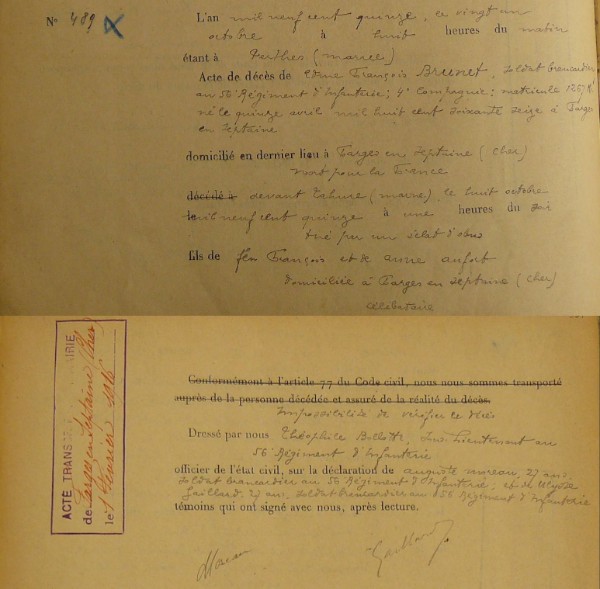 N° 489
L'an mil neuf cent quinze, le vingt un
octobre à huit heures du matin
étant à Perthes (marne)
Acte de décès de Edme François Brunet, soldat brancardier
au 56e Régiment d'Infanterie; 4e Compagnie; matricule
né le quinze avril mil huit cent soixante seize à Farges
en Septaine
domicilié en dernier lieu à Farges en septaine (Cher)
mort pour la France
décédé à devant Tahure (marne), le huit octobre
mil neuf cent quinze à une heures du soir
tué par un éclat d'obus
fils de feu François et de anne aufort
domiciliée à Farges en septaine (Cher)
célibataire
ACTE TRANSCRIT MAIRIE
de Farges en Septaine (Cher)
le février 1916
Conformément à l'article 77 du Code civil, nous nous sommes transporté
auprès de la personne décédée et assuré de la réalité du décès.
Impossibilité de vérifier le décès
Dressé par nous Théophile Billotte, Sous Lieutenant au
56 Régiment d'Infanterie
officier de l'état civil, sur la déclaration de auguste moreau, 27 ans,
soldat brancardier au 56 Régiment d'Infanterie, et de Ulysse
Gaillard, 27 ans, soldat brancardier au 56 Régiment d'Infanterie
témoins qui ont signé avec nous, après lecture.
Moreau Gaillard